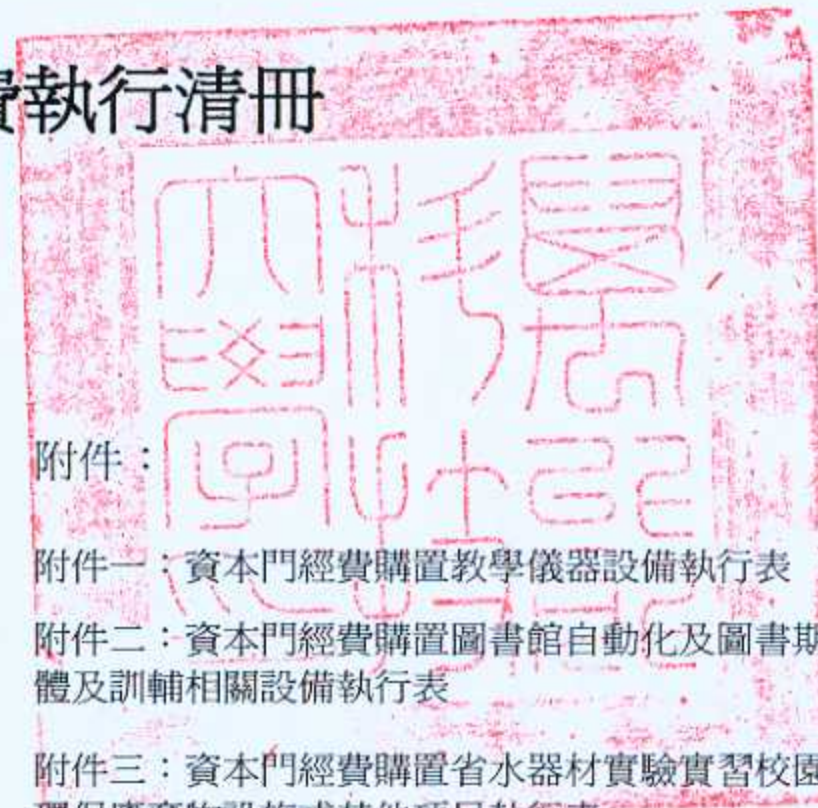 費執行清冊
附件：
附件一：資本門經費購置教學儀器設備執行表
附件二：資本門經費購置圖書館自動化及圖書期
體及訓輔相關設備執行表
附件三：資本門經費購置省水器材實驗實習校園